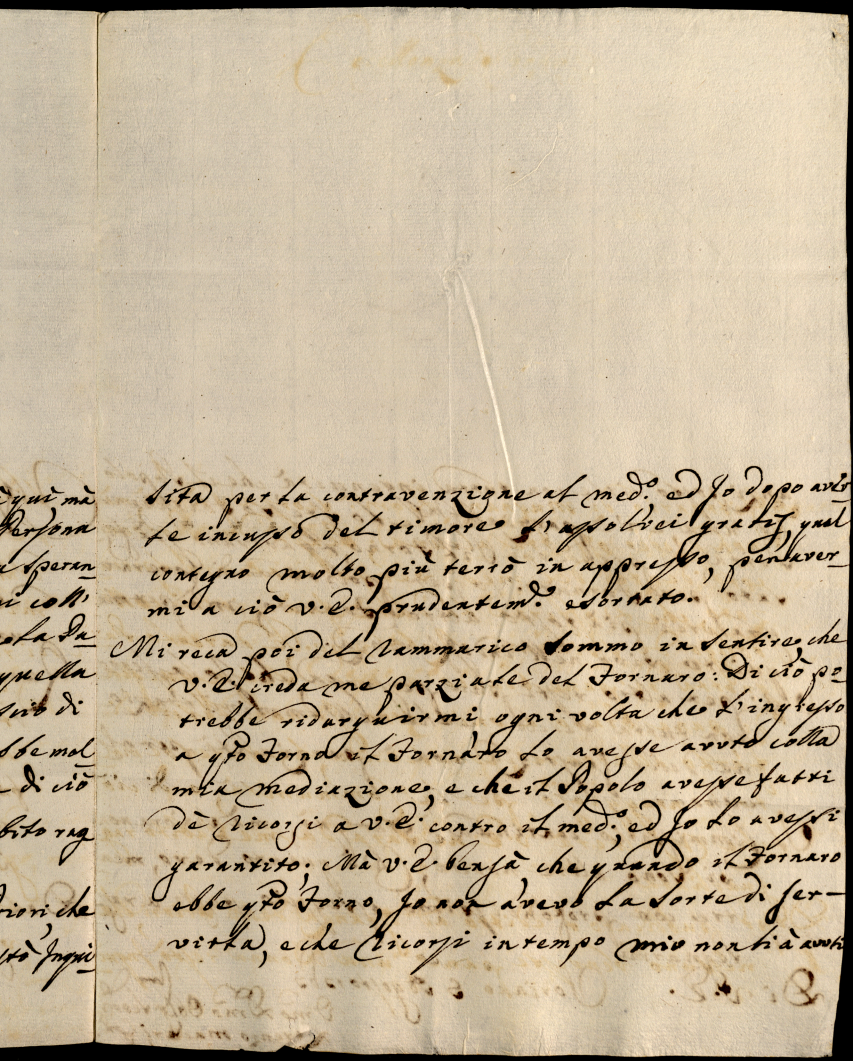 i qui mà
Persona
a speran-
ni coll'
quella
scio di
bbe mol
di ciò
bito rag
riori, che
Inqui-
sita per la contravenzione al med.º ed Jo dopo aver-
le incusso del timore l'assolvei gratis, qual
contegno molto più terrò in appresso, per aver-
mi a ciò V.E. prudentem.e esortato.
Mi reca poi del rammarico sommo in sentire, che
V.E. creda me parziale del Fornaro: Di ciò po-
trebbe ridarguirmi ogni volta che l'ingresso
a qſto Forno il Fornaro lo avesse avuto colla
mia mediazione, e che il Popolo avesse fatti
de ricorsi a V.E. contro il med.º, ed Jo lo avessi
garantito; Mà V.E. bensà, che quando il Fornaro
ebbe qſto Forno, Jo non avevo la sorte di ser-
virla, e che ricorsi in tempo mio non li à avuti